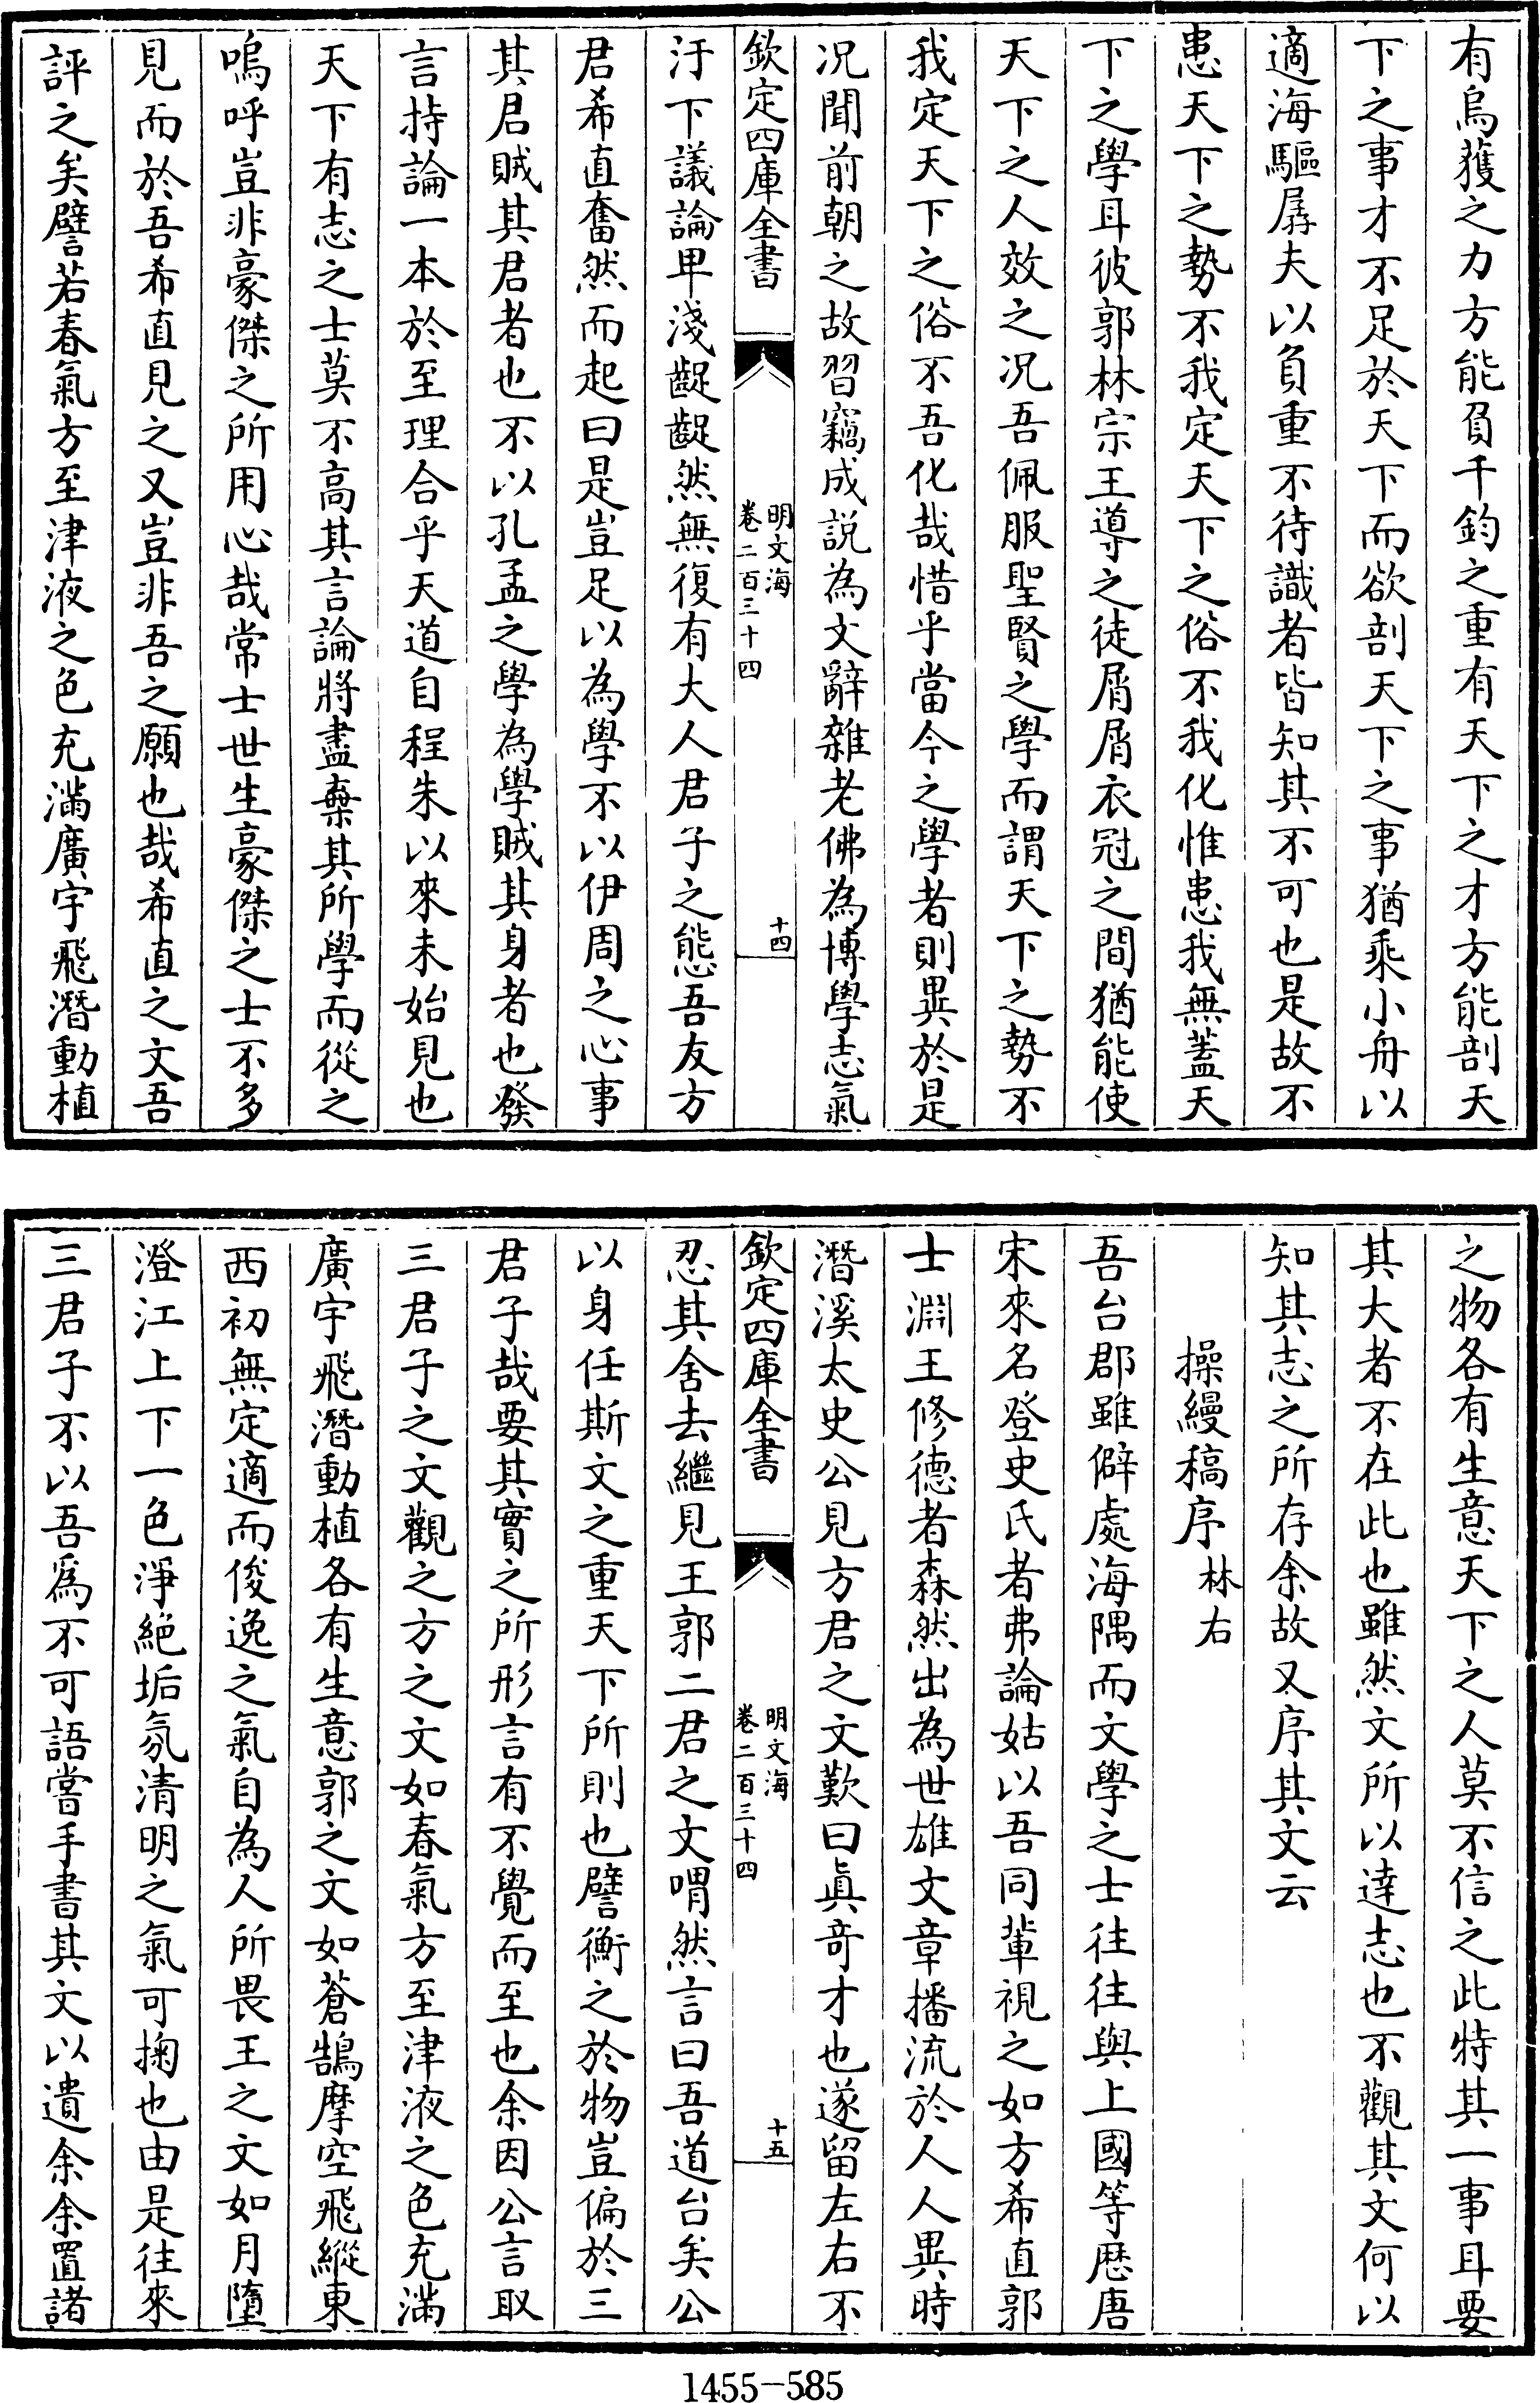 有烏獲之力方能負千鈞之重有天下之才方能剖天
下之事才不足於天下而欲剖天下之事猶乘小舟以
適海驅孱夫以負重不待識者皆知其不可也是故不
患天下之勢不我定天下之俗不我化惟患我無蓋天
下之學耳彼郭林宗王導之徒屑屑衣冠之間猶能使
天下之人效之况吾佩服聖賢之學而謂天下之勢不
我定天下之俗不吾化哉惜乎當今之學者則異於是
况聞前朝之故習竊成説為文辭雜老佛為博學志氣
欽定四庫全書
明文海
卷二百三十四
十四
汙下議論卑淺齪齪然無復有大人君子之態吾友方
君希直奮然而起曰是豈足以為學不以伊周之心事
其君賊其君者也不以孔孟之學為學賊其身者也發
言持論一本於至理合乎天道自程朱以來未始見也
天下有志之士莫不高其言論將盡棄其所學而從之
嗚呼豈非豪傑之所用心哉常士世生豪傑之士不多
見而於吾希直見之又豈非吾之願也哉希直之文吾
評之矣譬若春氣方至津液之色充滿廣宇飛潛動植
之物各有生意天下之人莫不信之此特其一事耳要
其大者不在此也雖然文所以達志也不觀其文何以
知其志之所存余故又序其文云
操縵稿序 林右
吾台郡雖僻處海隅而文學之士往往與上國等歷唐
宋來名登史氏者弗論姑以吾同輩視之如方希直郭
士淵王修德者森然出為世雄文章播流於人人異時
潛溪太史公見方君之文歎曰真奇才也遂留左右不
欽定四庫全書
明文海
卷二百三十四
十五
忍其舍去繼見王郭二君之文喟然言曰吾道台矣公
以身任斯文之重天下所則也譬衡之於物豈偏於三
君子哉要其實之所形言有不覺而至也余因公言取
三君子之文觀之方之文如春氣方至津液之色充滿
廣宇飛潛動植各有生意郭之文如蒼鵠摩空飛縱東
西初無定適而俊逸之氣自為人所畏王之文如月墮
澄江上下一色淨絕垢氛清明之氣可掬也由是往來
三君子不以吾爲不可語嘗手書其文以遺余余置諸
1455-585